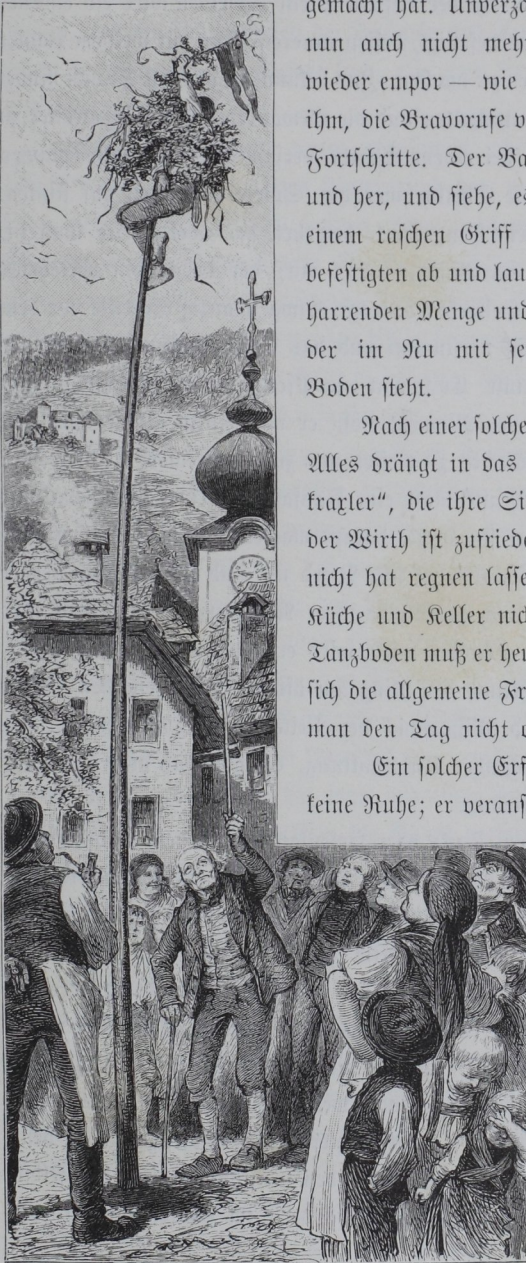 gemacht hat. Unverza
nun auch nicht meh
wieder empor — wie
ihm, die Bravorufe v
Fortschritte. Der Ba
und her, und siehe, es
einem raschen Griff
befestigten ab und lau
harrenden Menge und
der im Nu mit se
Boden steht.
Nach einer solche
Alles drängt in das
kraxler“, die ihre Si
der Wirth ist zufriede
nicht hat regnen lasse
Küche und Keller nic
Tanzboden muß er her
sich die allgemeine Fr
man den Tag nicht
Ein solcher Erf
keine Ruhe; er verans